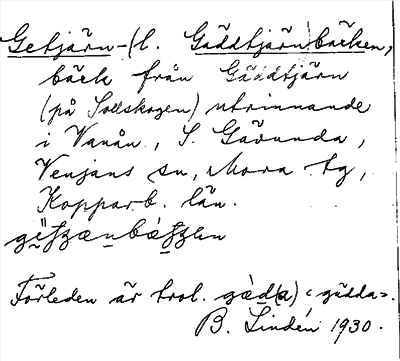 Getjärn-(l. Gäddtjärn)bäcken,
bäck från Gäddtjärn
(på Sollskogen) utrinnande
i Vanån, S. Gävunda,
Venjans sn, Mora tg,
Kopparb. län.
Förleden är trol. gäd(a) <gädda>.
B. Lindén 1930.